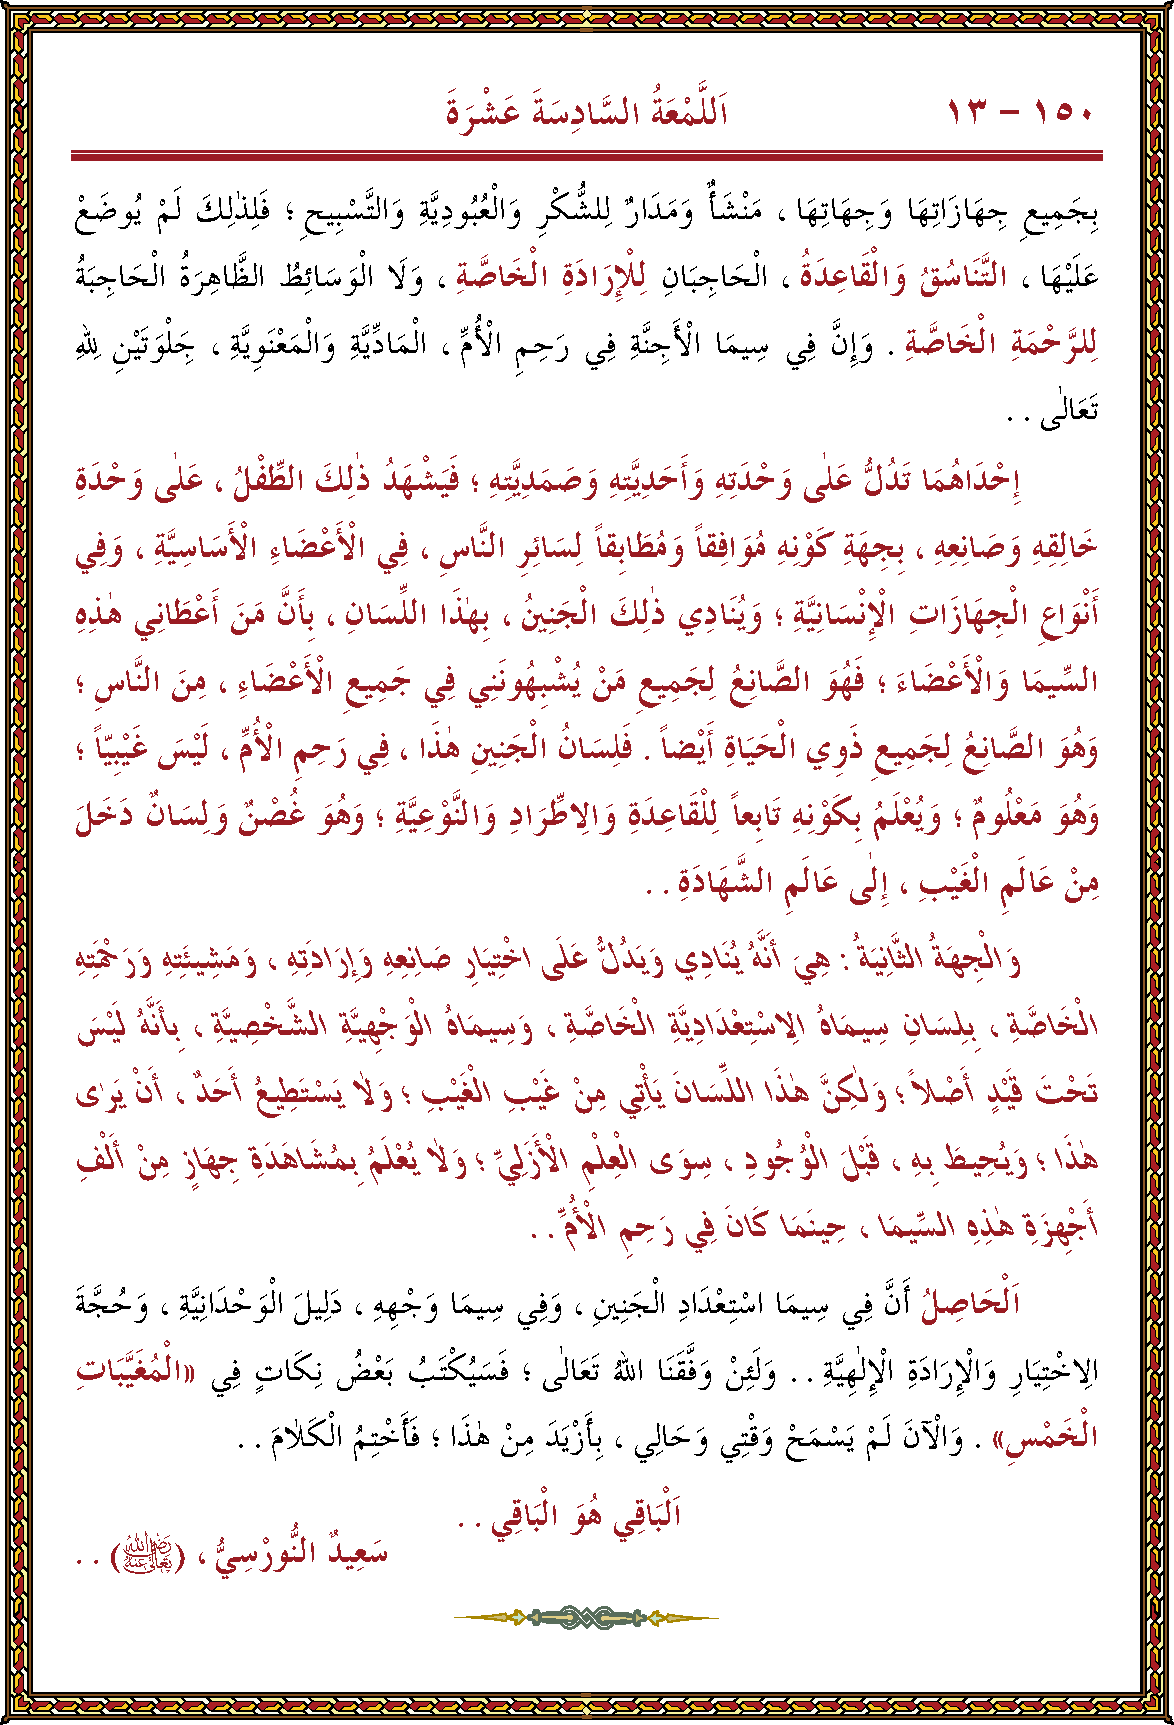 ١٥٠ – ١٣ اَللَّمْعَةُ السَّادِسَةَ عَشْرَةَ
بِجَمِيعِ جِهَازَاتِهَا وَجِهَاتِهَا ، مَنْشَأٌ وَمَدَارٌ لِلشُّكْرِ وَالْعُبُودِيَّةِ وَالتَّسْبِيحِ ؛ فَلِذٰلِكَ لَمْ يُوضَعْ
عَلَيْهَا ، التَّنَاسُقُ وَالْقَاعِدَةُ ، الْحَاجِبَانِ لِلْإِرَادَةِ الْخَاصَّةِ ، وَلَا الْوَسَائِطُ الظَّاهِرَةُ الْحَاجِبَةُ
لِلرَّحْمَةِ الْخَاصَّةِ . وَإِنَّ فِي سِيمَا الْأَجِنَّةِ فِي رَحِمِ الْأُمِّ ، الْمَادِّيَّةِ وَالْمَعْنَوِيَّةِ ، جَلْوَتَيْنِ لِلّٰهِ
تَعَالٰى . .
إِحْدَاهُمَا تَدُلُّ عَلٰى وَحْدَتِهِ وَأَحَدِيَّتِهِ وَصَمَدِيَّتِهِ ؛ فَيَشْهَدُ ذٰلِكَ الطِّفْلُ ، عَلٰى وَحْدَةِ
خَالِقِهِ وَصَانِعِهِ ، بِجِهَةِ كَوْنِهِ مُوَافِقاً وَمُطَابِقاً لِسَائِرِ النَّاسِ ، فِي الْأَعْضَاءِ الْأَسَاسِيَّةِ ، وَفِي
أَنْوَاعِ الْجِهَازَاتِ الْإِنْسَانِيَّةِ ؛ وَيُنَادِي ذٰلِكَ الْجَنِينُ ، بِهٰذَا اللِّسَانِ ، بِأَنَّ مَنَ أَعْطَانِي هٰذِهِ
السِّيمَا وَالْأَعْضَاءَ ؛ فَهُوَ الصَّانِعُ لِجَمِيعِ مَنْ يُشْبِهُونَنِي فِي جَمِيعِ الْأَعْضَاءِ ، مِنَ النَّاسِ ؛
وَهُوَ الصَّانِعُ لِجَمِيعِ ذَوِي الْحَيَاةِ أَيْضاً . فَلِسَانُ الْجَنِينِ هٰذَا ، فِي رَحِمِ الْأُمِّ ، لَيْسَ غَيْبِيّاً ؛
وَهُوَ مَعْلُومٌ ؛ وَيُعْلَمُ بِكَوْنِهِ تَابِعاً لِلْقَاعِدَةِ وَالِاطِّرَادِ وَالنَّوْعِيَّةِ ؛ وَهُوَ غُصْنٌ وَلِسَانٌ دَخَلَ
مِنْ عَالَمِ الْغَيْبِ ، إِلٰى عَالَمِ الشَّهَادَةِ . .
وَالْجِهَةُ الثَّانِيَةُ : هِيَ أَنَّهُ يُنَادِي وَيَدُلُّ عَلَى اخْتِيَارِ صَانِعِهِ وَإِرَادَتِهِ ، وَمَشِيئَتِهِ وَرَحْمَتِهِ
الْخَاصَّةِ ، بِلِسَانِ سِيمَاهُ الِاسْتِعْدَادِيَّةِ الْخَاصَّةِ ، وَسِيمَاهُ الْوَجْهِيَّةِ الشَّخْصِيَّةِ ، بِأَنَّهُ لَيْسَ
تَحْتَ قَيْدٍ أَصْلاً ؛ وَلٰكِنَّ هٰذَا اللِّسَانَ يَأْتِي مِنْ غَيْبِ الْغَيْبِ ؛ وَلاٰ يَسْتَطِيعُ أَحَدٌ ، أَنْ يَرٰى
هٰذَا ؛ وَيُحِيطَ بِهِ ، قَبْلَ الْوُجُودِ ، سِوَى الْعِلْمِ الْأَزَلِيِّ ؛ وَلاٰ يُعْلَمُ بِمُشَاهَدَةِ جِهَازٍ مِنْ أَلْفِ
أَجْهِزَةِ هٰذِهِ السِّيمَا ، حِينَمَا كَانَ فِي رَحِمِ الْأُمِّ . .
اَلْحَاصِلُ أَنَّ فِي سِيمَا اسْتِعْدَادِ الْجَنِينِ ، وَفِي سِيمَا وَجْهِهِ ، دَلِيلَ الْوَحْدَانِيَّةِ ، وَحُجَّةَ
الِاخْتِيَارِ وَالْإِرَادَةِ الْإِلٰهِيَّةِ . . وَلَئِنْ وَفَّقَنَا اللّٰهُ تَعَالٰى ؛ فَسَيُكْتَبُ بَعْضُ نِكَاتٍ فِي «الْمُغَيَّبَاتِ
الْخَمْسِ» . وَالْآنَ لَمْ يَسْمَحْ وَقْتِي وَحَالِي ، بِأَزْيَدَ مِنْ هٰذَا ؛ فَأَخْتِمُ الْكَلاٰمَ . .
اَلْبَاقِي هُوَ الْبَاقِي . .
سَعِيدٌ النُّورْسِيُّ ، (رَضِيَ اللّٰهُ تَعَالٰى عَنْهُ) . .